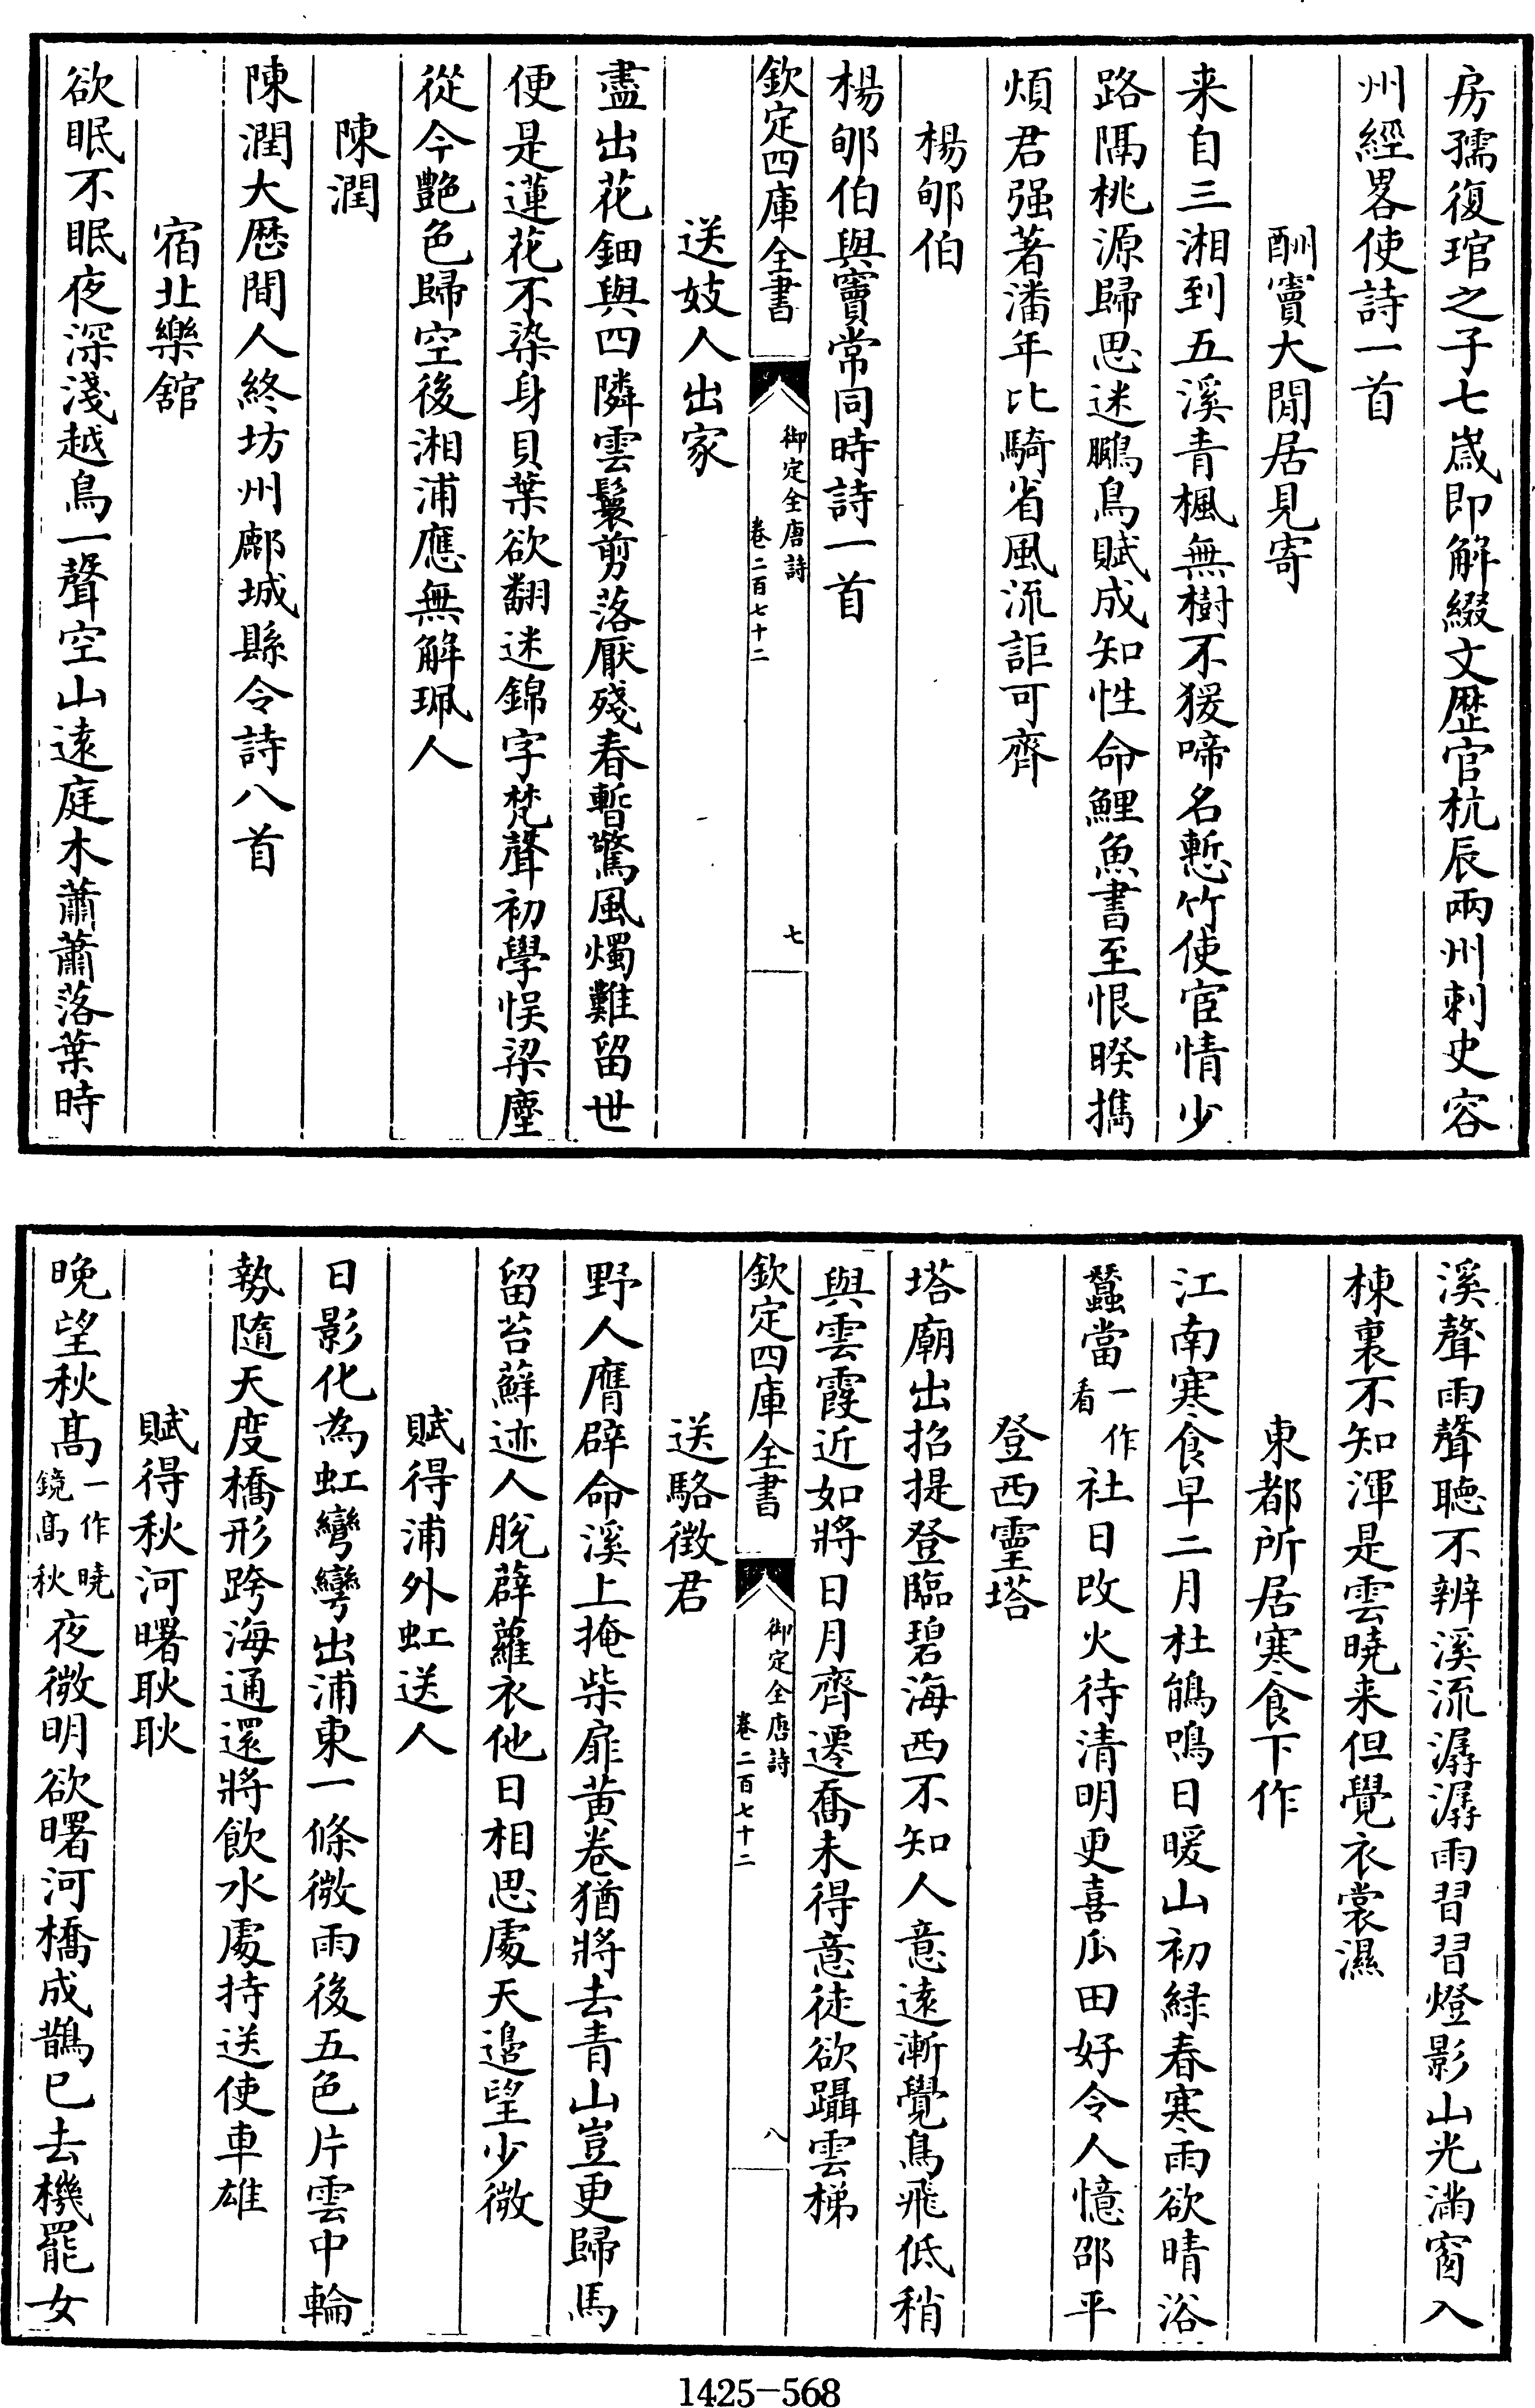 房孺復琯之子七歲即解綴文歷官杭辰兩州刺史容
州經畧使詩一首
酬竇大閒居見寄
来自三湘到五溪青楓無樹不猨啼名慙竹使宦情少
路隔桃源歸思迷鵩鳥賦成知性命鯉魚書至恨暌攜
煩君强著潘年比騎省風流詎可齊
楊郇伯
楊郇伯與竇常同時詩一首
欽定四庫全書
御定全唐詩
卷二百七十二
七
送妓人出家
盡出花鈿與四隣雲鬟剪落厭殘春暫驚風燭難留世
便是蓮花不染身貝葉欲翻迷錦字梵聲初學悮梁塵
從今艶色歸空後湘浦應無解珮人
陳潤
陳潤大厯間人終坊州鄜城縣令詩八首
宿北樂舘
欲眠不眠夜深淺越鳥一聲空山遠庭木蕭蕭落葉時
溪聲雨聲聴不辨溪流潺潺雨習習燈影山光滿窗入
棟裏不知渾是雲曉来但覺衣裳濕
東都所居寒食下作
江南寒食早二月杜鵑鳴日暖山初緑春寒雨欲晴浴
蠶當一作看社日改火待清明更喜瓜田好令人憶邵平
登西靈塔
塔廟出招提登臨碧海西不知人意遠漸覺鳥飛低稍
與雲霞近如將日月齊遷喬未得意徒欲躡雲梯
欽定四庫全書
御定全唐詩
卷二百七十二
八
送駱徵君
野人膺辟命溪上掩柴扉黄卷猶將去青山豈更歸馬
留苔蘚迹人脫薜蘿衣他日相思處天邉望少微
賦得浦外虹送人
日影化為虹彎彎出浦東一條微雨後五色片雲中輪
勢隨天度橋形跨海通還將飲水處持送使車雄
賦得秋河曙耿耿
晚望秋高一作曉鏡高秋夜微明欲曙河橋成鵲已去機罷女
1425-568